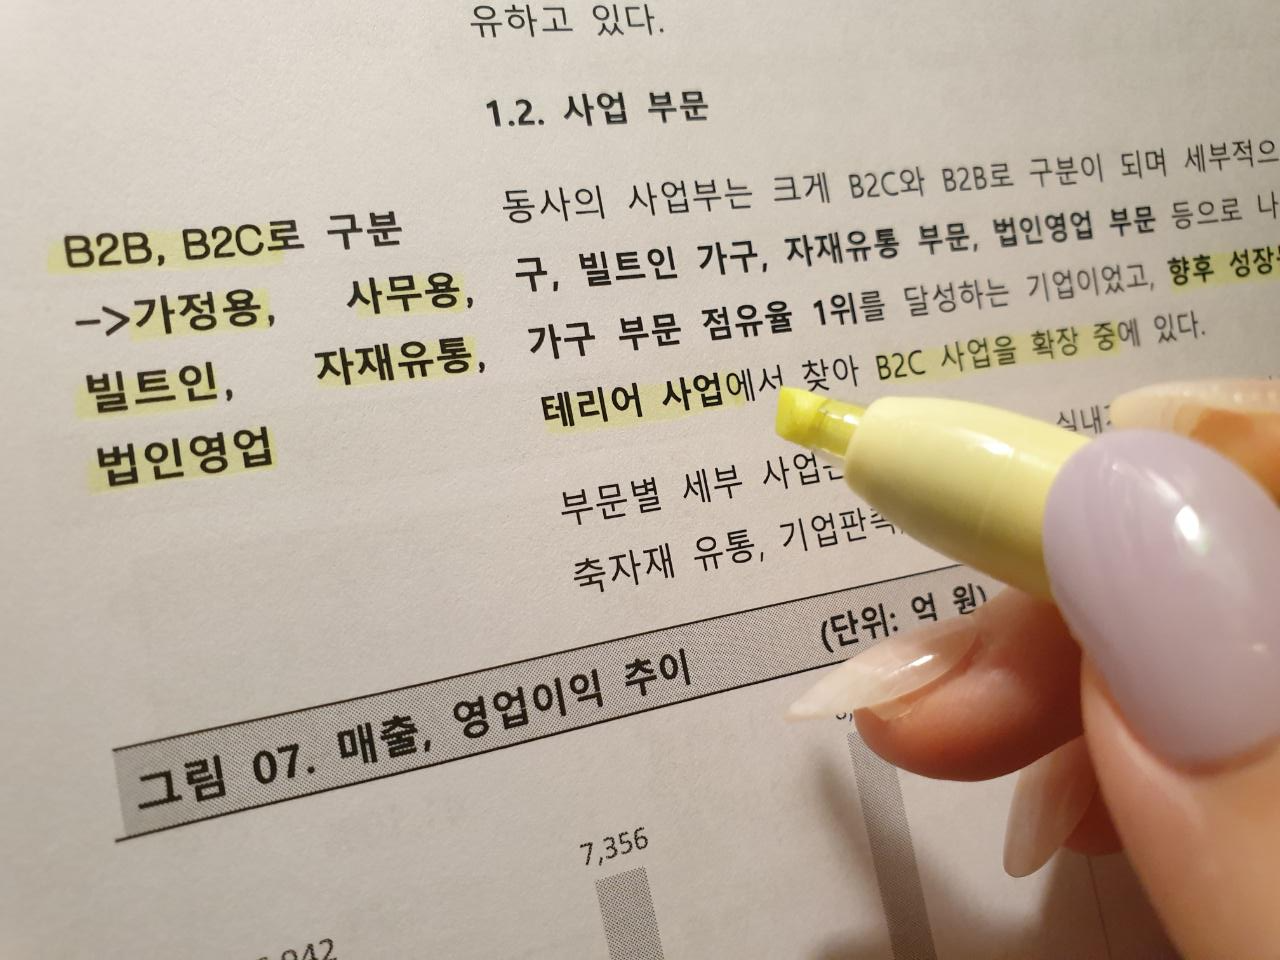 유하고 있다.
1.2. 사업 부문
B2B, B2C로 구분
->가정용, 사무용,
빌트인, 자재유통,
법인영업
동사의 사업부는 크게 B2C와 B2B로 구분이 되며 세부적으
구, 빌트인 가구, 자재유통 부문, 법인영업 부문 등으로 나
가구 부문 점유율 1위를 달성하는 기업이었고, 향후 성장
테리어 사업에서 찾아 B2C 사업을 확장 중에 있다.
실내
부문별 세부 사업
축자재 유통, 기업판
그림 07. 매출, 영업이익 추이 (단위: 억 원)
7,356